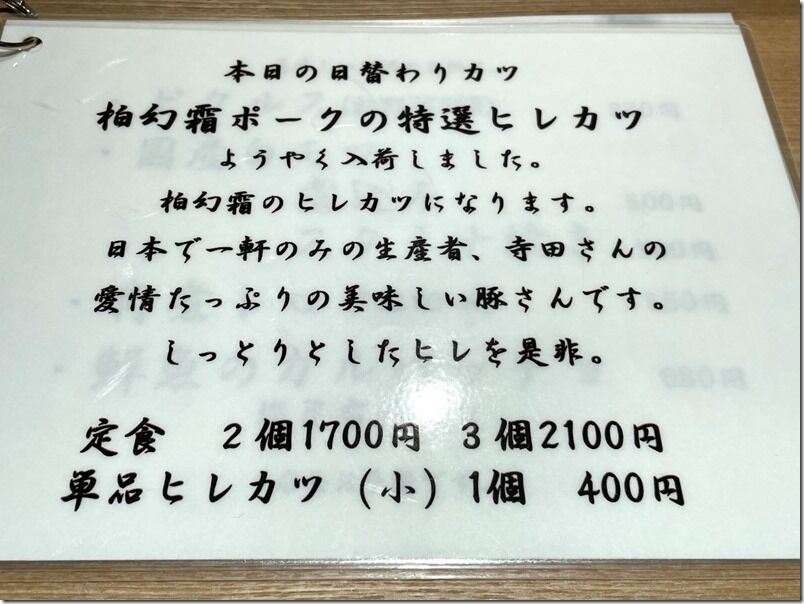 本日の日替わりカツ
柏幻霜ポークの特選ヒレカツ
ようやく入荷しました。
柏幻霜のヒレカツになります。
日本で一軒のみの生産者、寺田さんの
愛情たっぷりの美味しい豚さんです。
しっとりとしたヒレを是非。
定食 2個1700円 3個2100円
単品ヒレカツ (小) 1個 400円